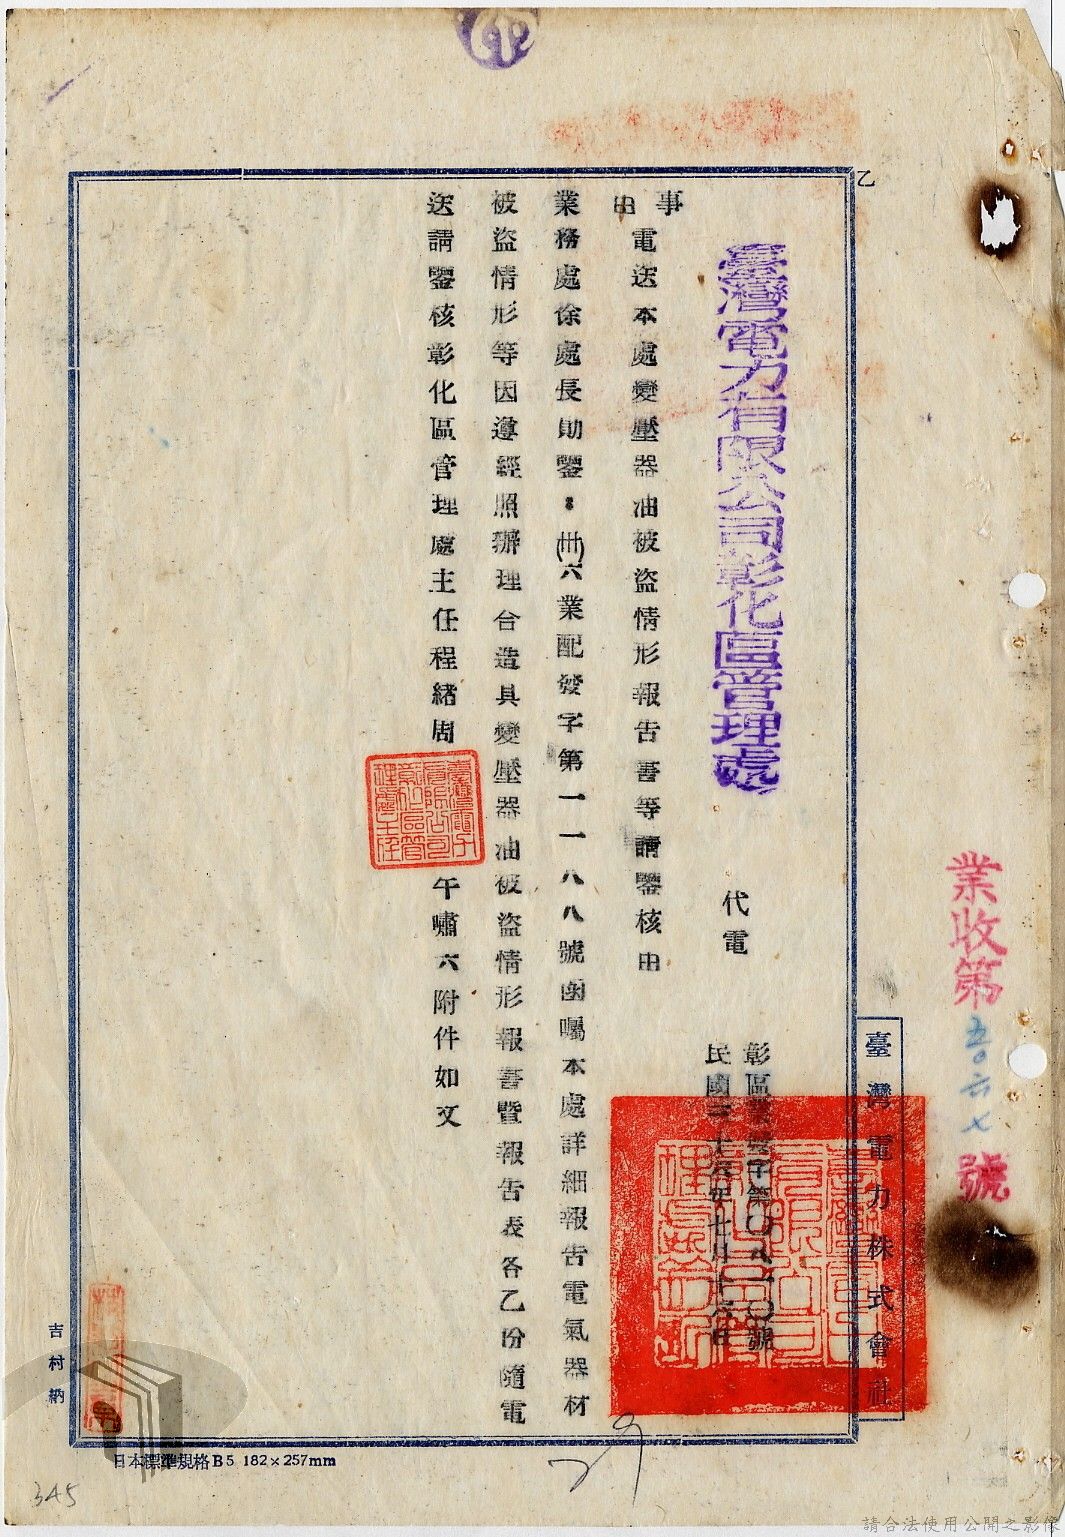 乙
業收第五〇六七號
臺灣電力株式會社
臺灣電力有限公司彰化區管理處
代電
彰區業發字第〇八一〇號
民國三十六年七月十六日
事由
電送本處變壓器油被盜情形報告書等請鑒核由
業務處徐處長勛鑒：(卅)六業配發字第一一八八號函囑本處詳細報告電氣器材
被盜情形等因遵經照辦理合造具變壓器油被盜情形報書暨報告表各乙份隨電
送請鑒核彰化區管理處主任程緒周
午嘯六附件如文
吉村納
日本標準規格B5 182×257mm
345
請合法使用公開之影像